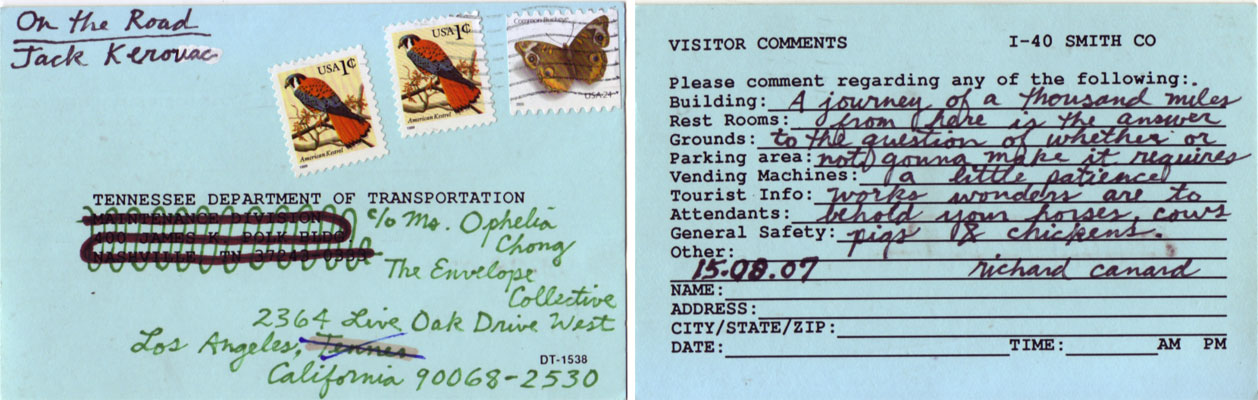 On the Road
Jack Kerouac
USA 1¢
American Kestrel
1999
USA 1¢
American Kestrel
1999
Common Buckeye
USA 24
TENNESSEE DEPARTMENT OF TRANSPORTATION
MAINTENANCE DIVISION
400 JAMES K. POLK BLDG
NASHVILLE, TN 37243-0333
c/o Ms. Ophelia
Chong
The Envelope
Collective
2364 Live Oak Drive West
Los Angeles, Tennes
California 90068-2530
DT-1538
VISITOR COMMENTS I-40 SMITH CO
Please comment regarding any of the following:.
Building: A journey of a thousand miles
Rest Rooms: from here is the answer
Grounds: to the question of whether or
Parking area: not gonna make it requires
Vending Machines: a little patience
Tourist Info: works wonders are to
Attendants: behold your horses, cows
General Safety: pigs & chickens.
Other:
15.08.07 richard canard
NAME:
ADDRESS:
CITY/STATE/ZIP:
DATE: TIME: AM PM